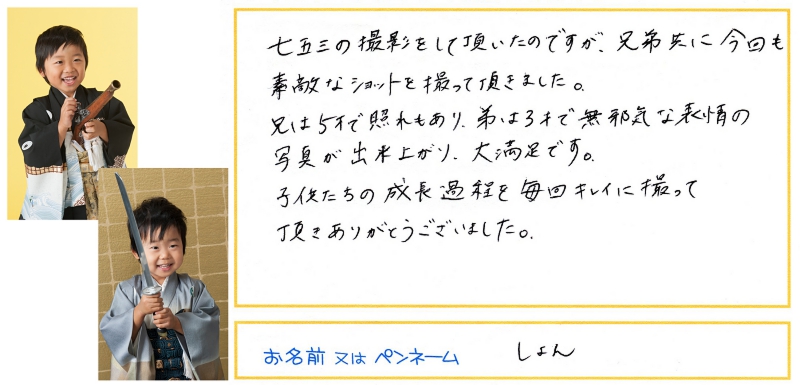 七五三の撮影をして頂いたのですが、兄弟共に今回も
素敵なショットを撮って頂きました。
兄は5才で照れもあり、弟は3才で無邪気な表情の
写真が出来上がり、大満足です。
子供たちの成長過程を毎回キレイに撮って
頂きありがとうございました。
お名前 又は ペンネーム しょん